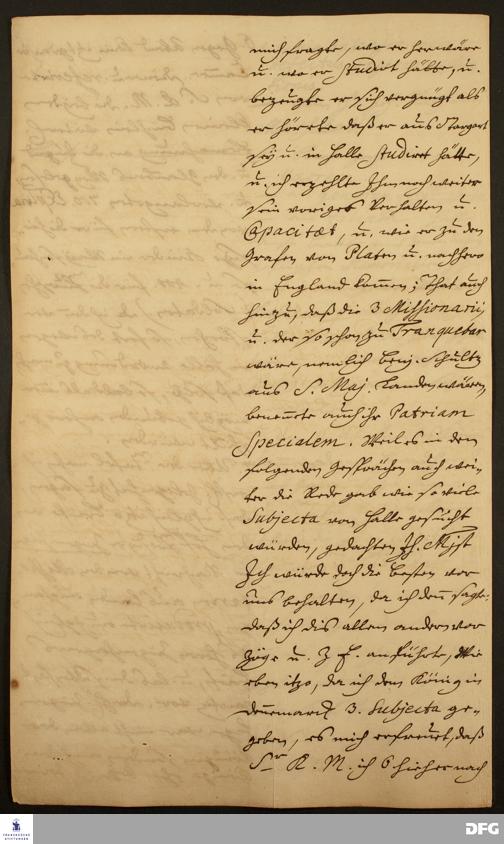 mich fragte, wo er her wäre
u. wo er studirt hätte, u.
bezeugte er sich vergnügt als
er hörete daß er aus Stargart
sey u. in Halle studiret hätte,
u. ich erzehlte Ihm noch weiter
sein voriges Verhalten u.
Capacitæt, u. wie er zu den
Grafen von Platen u. nachhero
in England kommen; That auch
hinzu, daß die 3 Missionarii,
u. der so schon zu Tranquebar
wäre, nemlich Benj. Schultz
aus S. Maj. Landen wären,
benennete auch ihr Patriam
Specialem. Weil es in den
folgenden Gesprächen auch wei-
ter die Rede gab wie so viele
Subjecta von Halle gesucht
würden, gedachten Ih. Mjst
Ich würde doch die besten vor
uns behalten, da ich denn sagte:
daß ich dis allen andern vor
zöge u. Z. E. anführte, wie
eben itzo, da ich dem König in
Dennemarck 3. Subjecta ge-
geben, es mich erfreuet, daß
Sr K. M. ich 6 hieher nach
FRANCKESCHE STIFTUNGEN
DFG